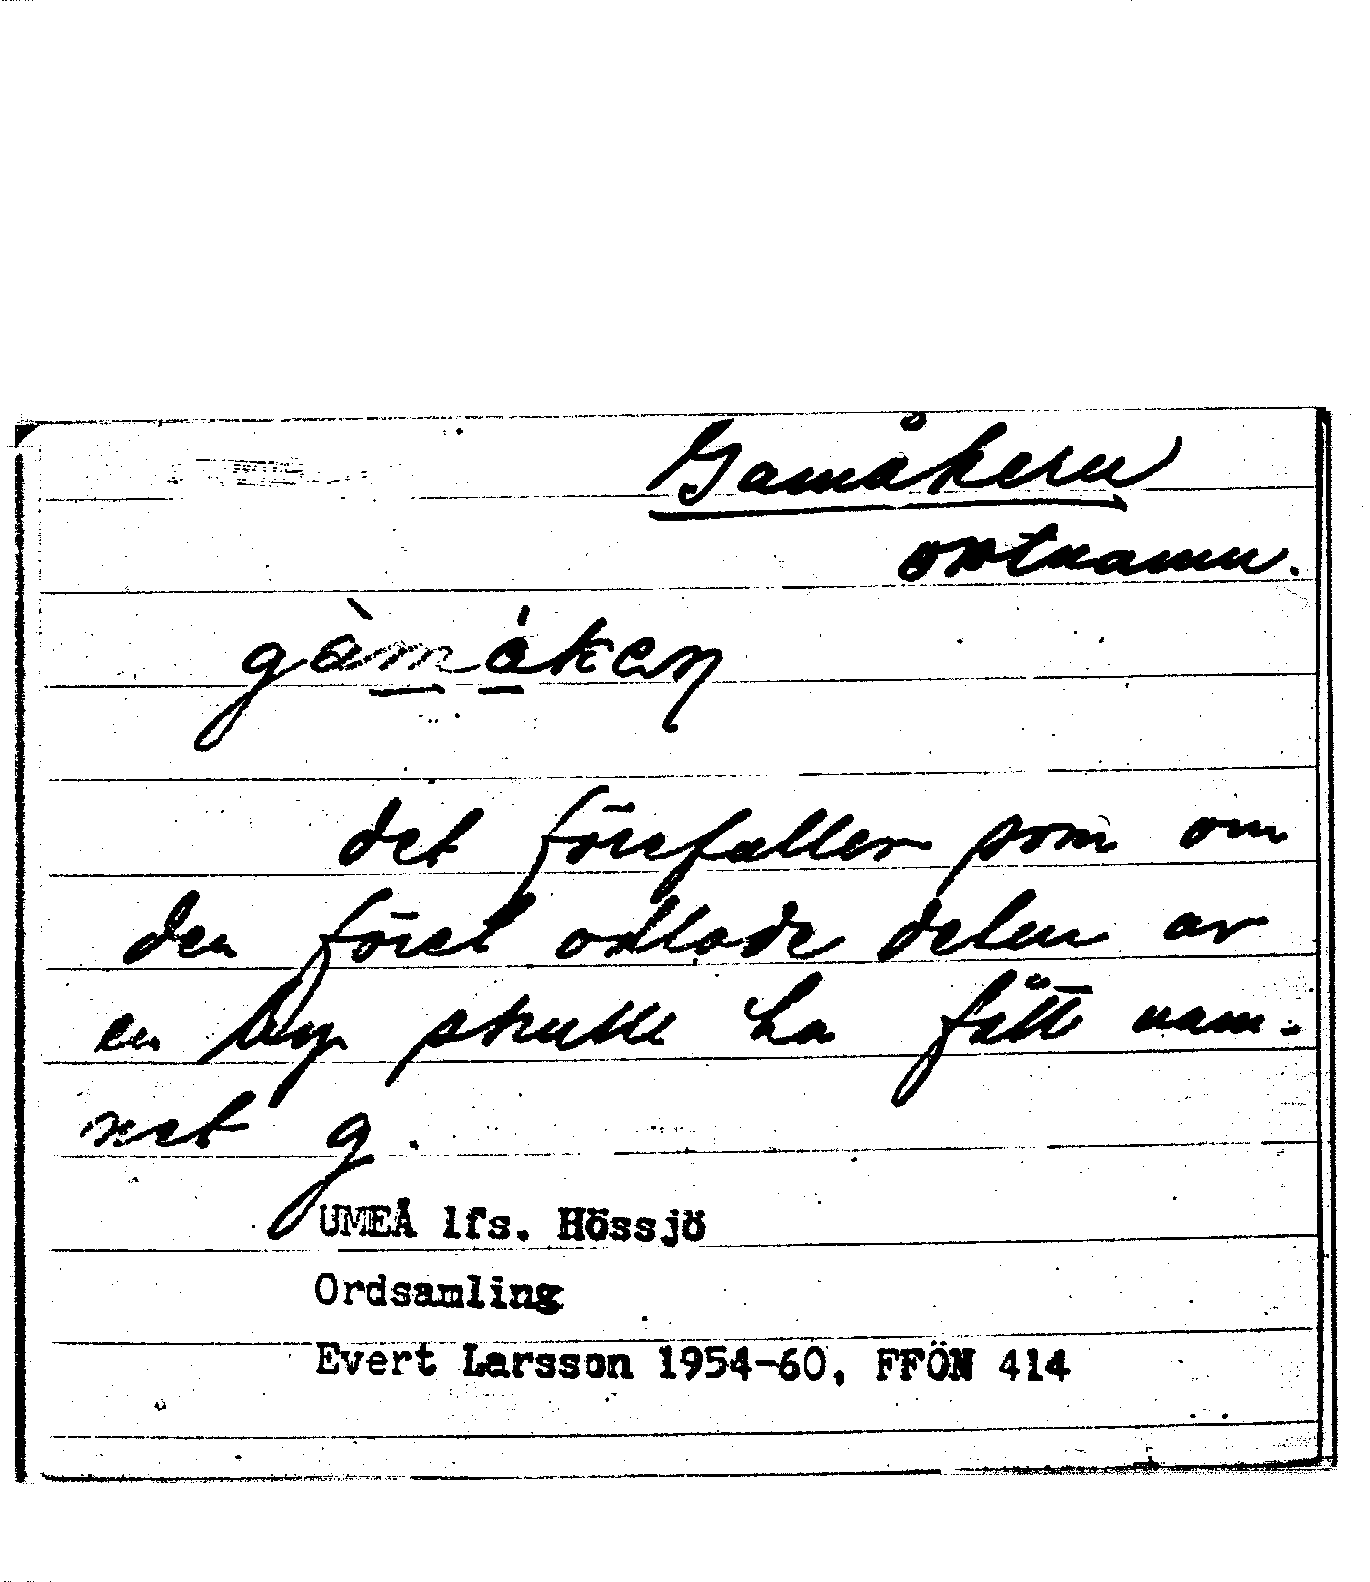 Gamåkern
ortnamn.
gàmákeṇ
det förefaller som om
den först odlade delen av
en by skulle ha fått nam-
net g.
UMEÅ lfs. Hössjö
Ordsamling
Evert Larsson 1954-60, FFÖN 414